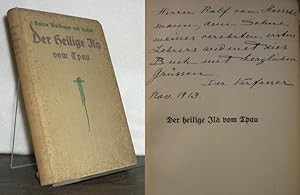 Der heilige Ilà
vom Tpau
Herrn Rolf von Hoersch
mann dem Sohne
meines verehrten ersten
Lehrers widmet dies
Buch mit herzlichen
Grüssen
Der Verfasser
Nov. 1913.
Der heilige Ilà vom Tpau